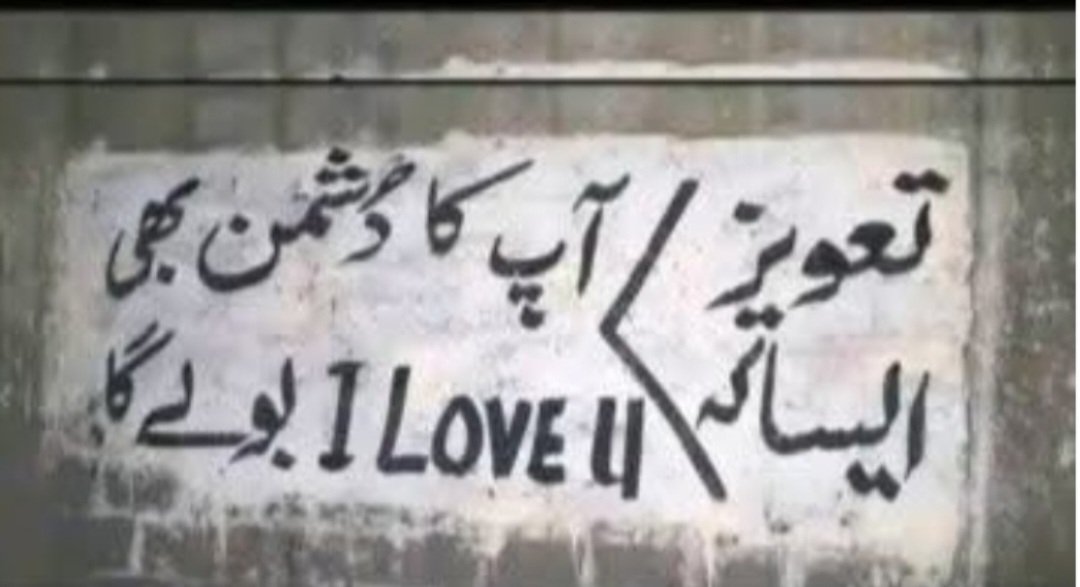 تعویز
ایسا کہ
آپ کا دُشمن بھی
I LOVE U بولے گا